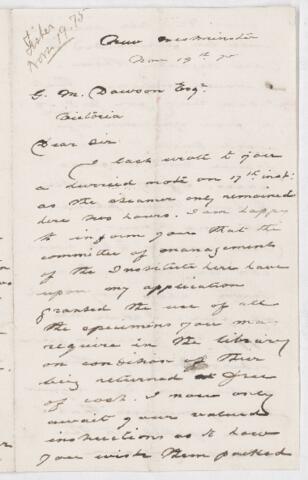 Fisher
Nov. 19. 75
New Westminster
Nov 19th 75
G. M. Dawson Esqr
Victoria
Dear Sir
I last wrote to you
a hurried note on 17th inst:
as the steamer only remained
here two hours. I am happy
to inform you that the
committee of managements
of the Institute here have
upon my application
granted the use of all
the specimens you may
require in the library
on condition of their
being returned free
of cost. I now only
await your valued
instructions as to how
you wish them packed